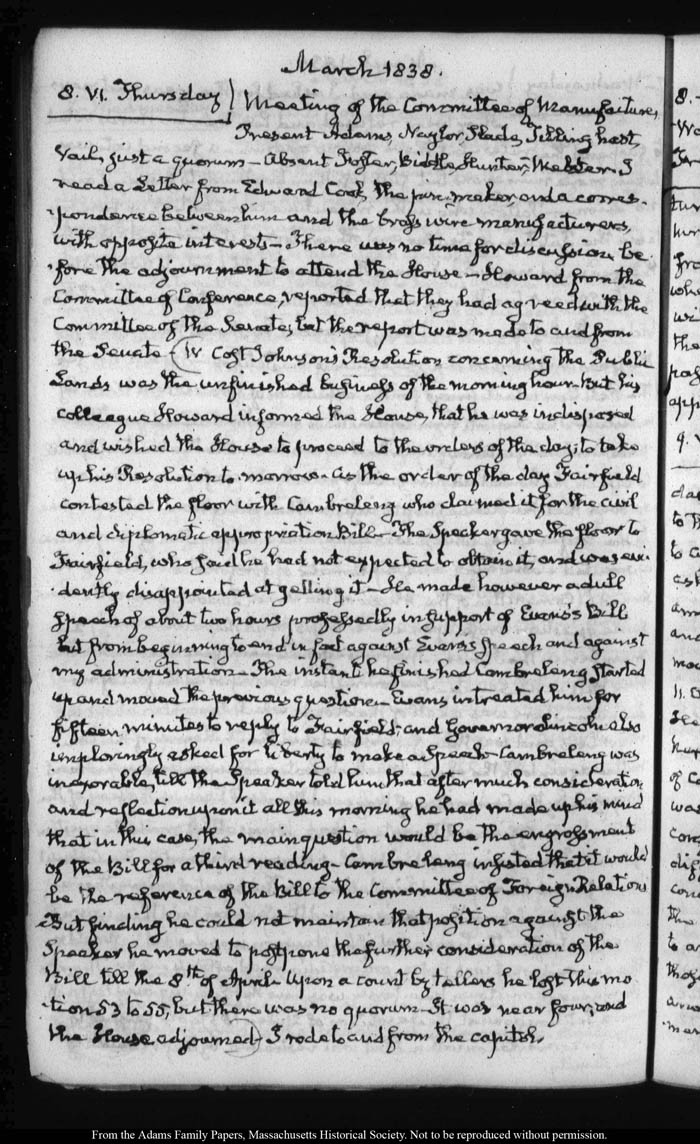 March 1838.
8. VI. Thursday
Meeting of the Committee of Manufactures,
Present Adams, Naylor, Slade, Tillinghast,
Vail, just a quorum — Absent Foster, Biddle, Hunter, Webster. I
read a Letter from Edward Cook, the pin-maker, and a corres-
pondence between him and the brass wire manufacturers,
with opposite interests — There was no time for discussion be-
fore the adjournment to attend the House — Howard from the
Committee of Conference, reported that they had agreed with the
Committee of the Senate, but the report was made to and from
the Senate — W Cost Johnson's Resolution concerning the Public
Lands was the unfinished business of the morning hour. But his
colleague Howard informed the House, that he was indisposed
and wished the House to proceed to the orders of the day, to take
up his Resolution to-morrow. As the order of the day Fairfield
contested the floor with Cambreleng who claimed it for the civil
and diplomatic appropriation Bill — The Speaker gave the floor to
Fairfield, who said he had not expected to obtain it, and was evi-
dently disappointed at getting it — He made however a dull
Speech of about two hours professedly in support of Evans's Bill
but from beginning to end in fact against Evans's speech and against
my administration — The instant he finished Cambreleng started
up and moved the previous question — Evans intreated him for
fifteen minutes to reply to Fairfield; and Governor Lincoln also
imploringly asked for liberty to make a Speech — Cambreleng was
inexorable, till the Speaker told him that after much consideration
and reflection upon it all this morning he had made up his mind
that in this case, the main question would be the engrossment
of the Bill for a third reading — Cambreleng insisted that it would
be the reference of the Bill to the Committee of Foreign Relations
But finding he could not maintain that position against the
Speaker he moved to postpone the further consideration of the
Bill till the 8th of April. Upon a count by tellers he lost this mo-
tion 53 to 55, but there was no quorum — It was near four, and
the House adjourned — I rode to and from the capitol.
From the Adams Family Papers, Massachusetts Historical Society. Not to be reproduced without permission.